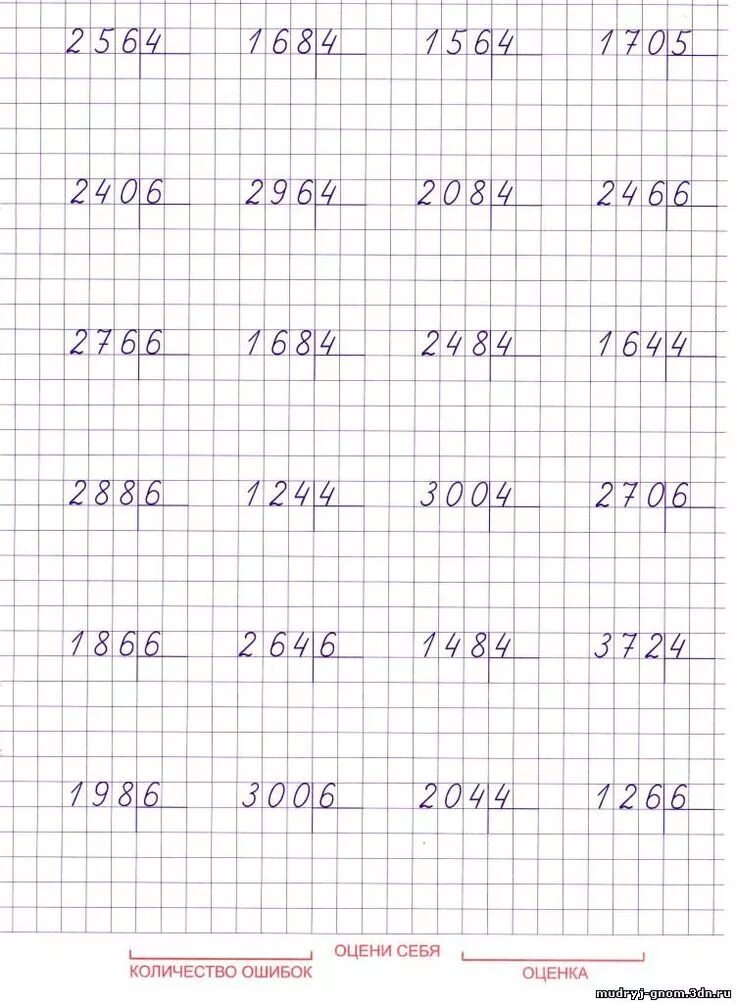 256|4 168|4 156|4 170|5
240|6 296|4 208|4 246|6
276|6 168|4 248|4 164|4
288|6 124|4 300|4 270|6
186|6 264|6 148|4 372|4
198|6 300|6 204|4 126|6
ОЦЕНИ СЕБЯ
КОЛИЧЕСТВО ОШИБОК ОЦЕНКА
mudryj-gnom.3dn.ru